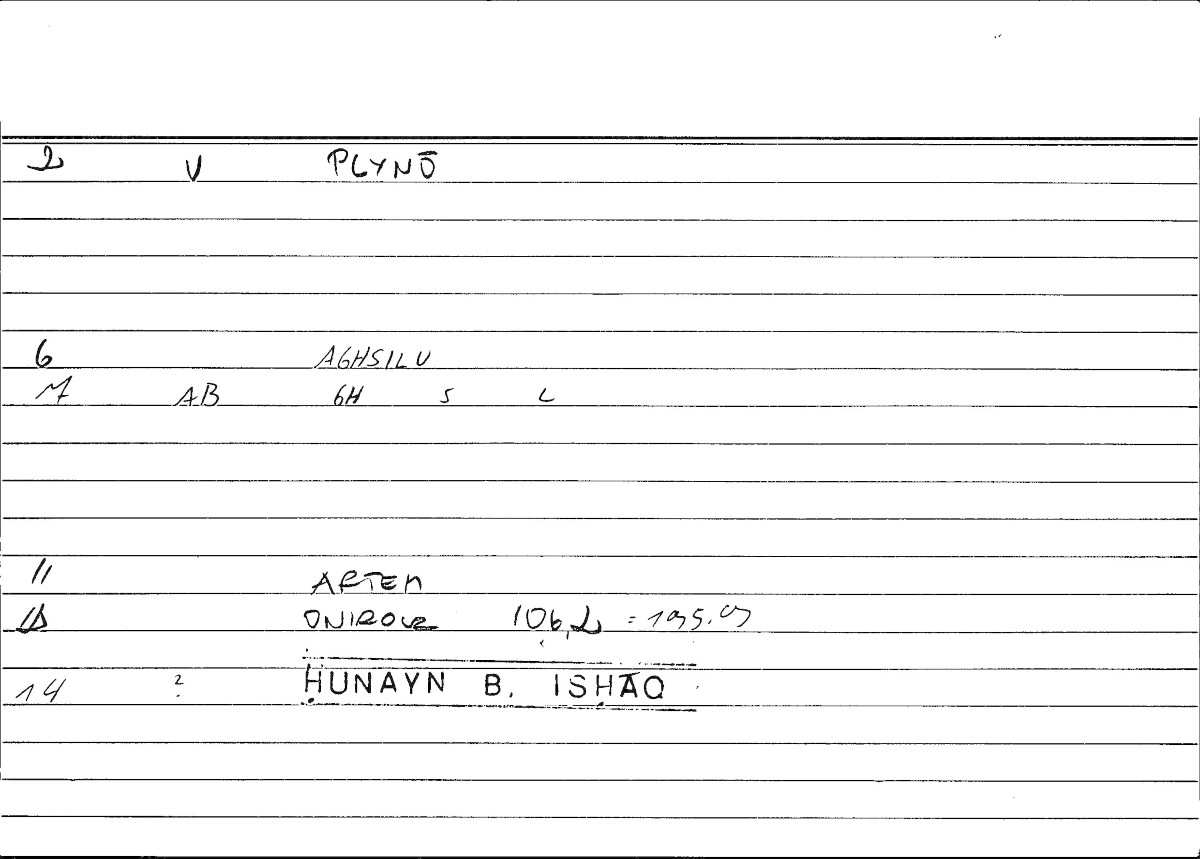 2 V PLYNŌ
6 AGHSILU
7 AB GH S L
11 ARTEM
ONIROCR 106,2 =
14 ? ḤUNAYN B. ISḤĀQ